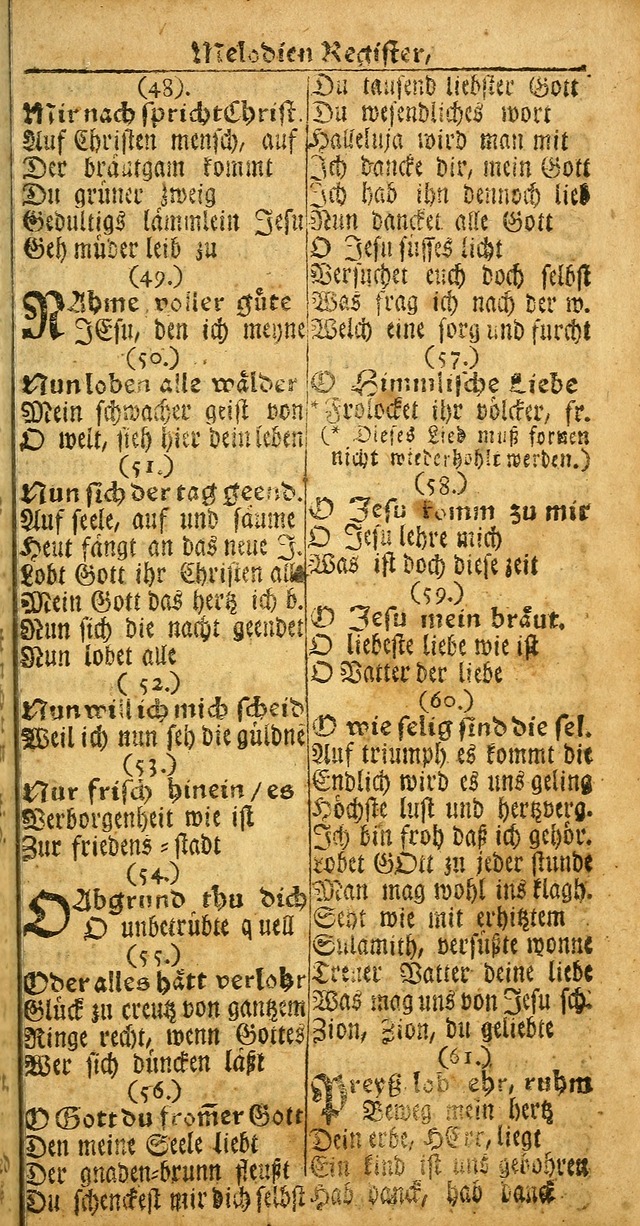 Melodien Register,
(48).
Mir nach spricht Christ.
Auf Christen mensch, auf
Der bräutgam kommt
Du grüner zweig
Gedultigs lämmlein Jesu
Geh müder leib zu
(49.)
NAhme voller güte
JEsu, den ich meyne
(50.)
Nun loben alle wälder
Mein schwacher geist von
O welt, sieh hier dein leben
(51.)
Nun sich der tag geend.
Auf seele, auf und säume
Heut fängt an das neue J.
Lobt Gott ihr Christen alle
Mein Gott das hertz ich b.
Nun sich die nacht geendet
Nun lobet alle
(52.)
Nun will ich mich scheid
Weil ich nun seh die güldne
(53.)
Nur frisch hinein / es
Verborgenheit wie ist
Zur friedens-stadt
(54.)
OAbgrund thu dich
O unbetrübte quell
(55.)
O der alles hätt verlohr
Glück zu creutz von gantzem
Ringe recht, wenn Gottes
Wer sich düncken läßt
(56.)
O Gott du from̄er Gott
Den meine Seele liebt
Der gnaden-brunn fleußt
Du schenckest mir dich selbst
Du tausend liebster Gott
Du wesendliches wort
Halleluja wird man mit
Ich dancke dir, mein Gott
Ich hab ihn dennoch lieb
Nun dancket alle Gott
O Jesu süsses licht
Versuchet euch doch selbst
Was frag ich nach der w.
Welch eine sorg und furcht
(57.)
O Himmlische Liebe
* Frolocket ihr völcker, fr.
(* Dieses Lied muß fornen
nicht wiederhohlt werden.)
(58.)
O Jesu komm zu mir
O Jesu lehre mich
Was ist doch diese zeit
(59.)
O Jesu mein bräut.
O liebeste liebe wie ist
O Vatter der liebe
(60.)
O wie selig sind die sel.
Auf triumph es kommt die
Endlich wird es uns geling
Höchste lust und hertzverg.
Ich bin froh daß ich gehör.
Lobet GOtt zu jeder stunde
Man mag wohl ins klagh.
Seht wie mit erhitztem
Sulamith, versüßte wonne
Treuer Vatter deine liebe
Was mag uns von Jesu sch.
Zion, Zion, du geliebte
(61.)
Preyß lob ehr, ruhm
Beweg mein hertz
Dein erbe, HErr, liegt
Ein kind ist uns gebohren
Hab danck, hab danck